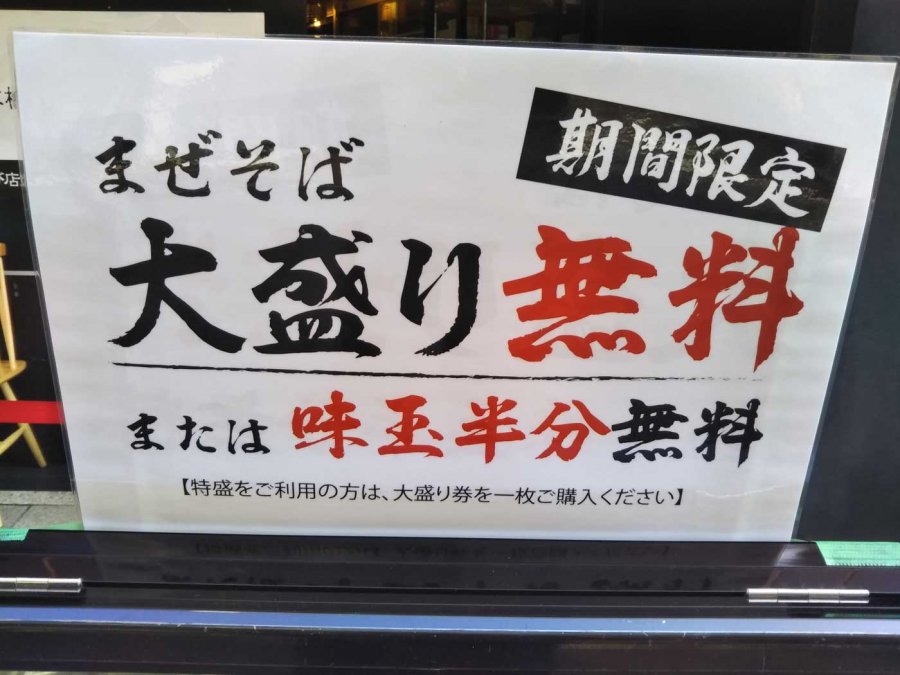 期間限定
まぜそば
大盛り無料
または味玉半分無料
【特盛をご利用の方は、大盛り券を一枚ご購入ください】